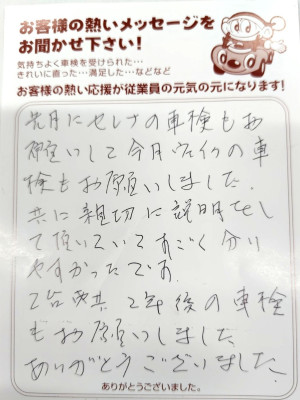 お客様の熱いメッセージを
お聞かせ下さい！
気持ちよく車検を受けられた…
きれいに直った…満足した…などなど
お客様の熱い応援が従業員の元気の元になります!
先月にセレナの車検もお
願いして今月の車
検もお願いしました.
共に親切に説明をし
て頂いていてすごく分り
やすかったです.
2台共2年後の車検
もお願いしました
ありがとうございました.
ありがとうございました。